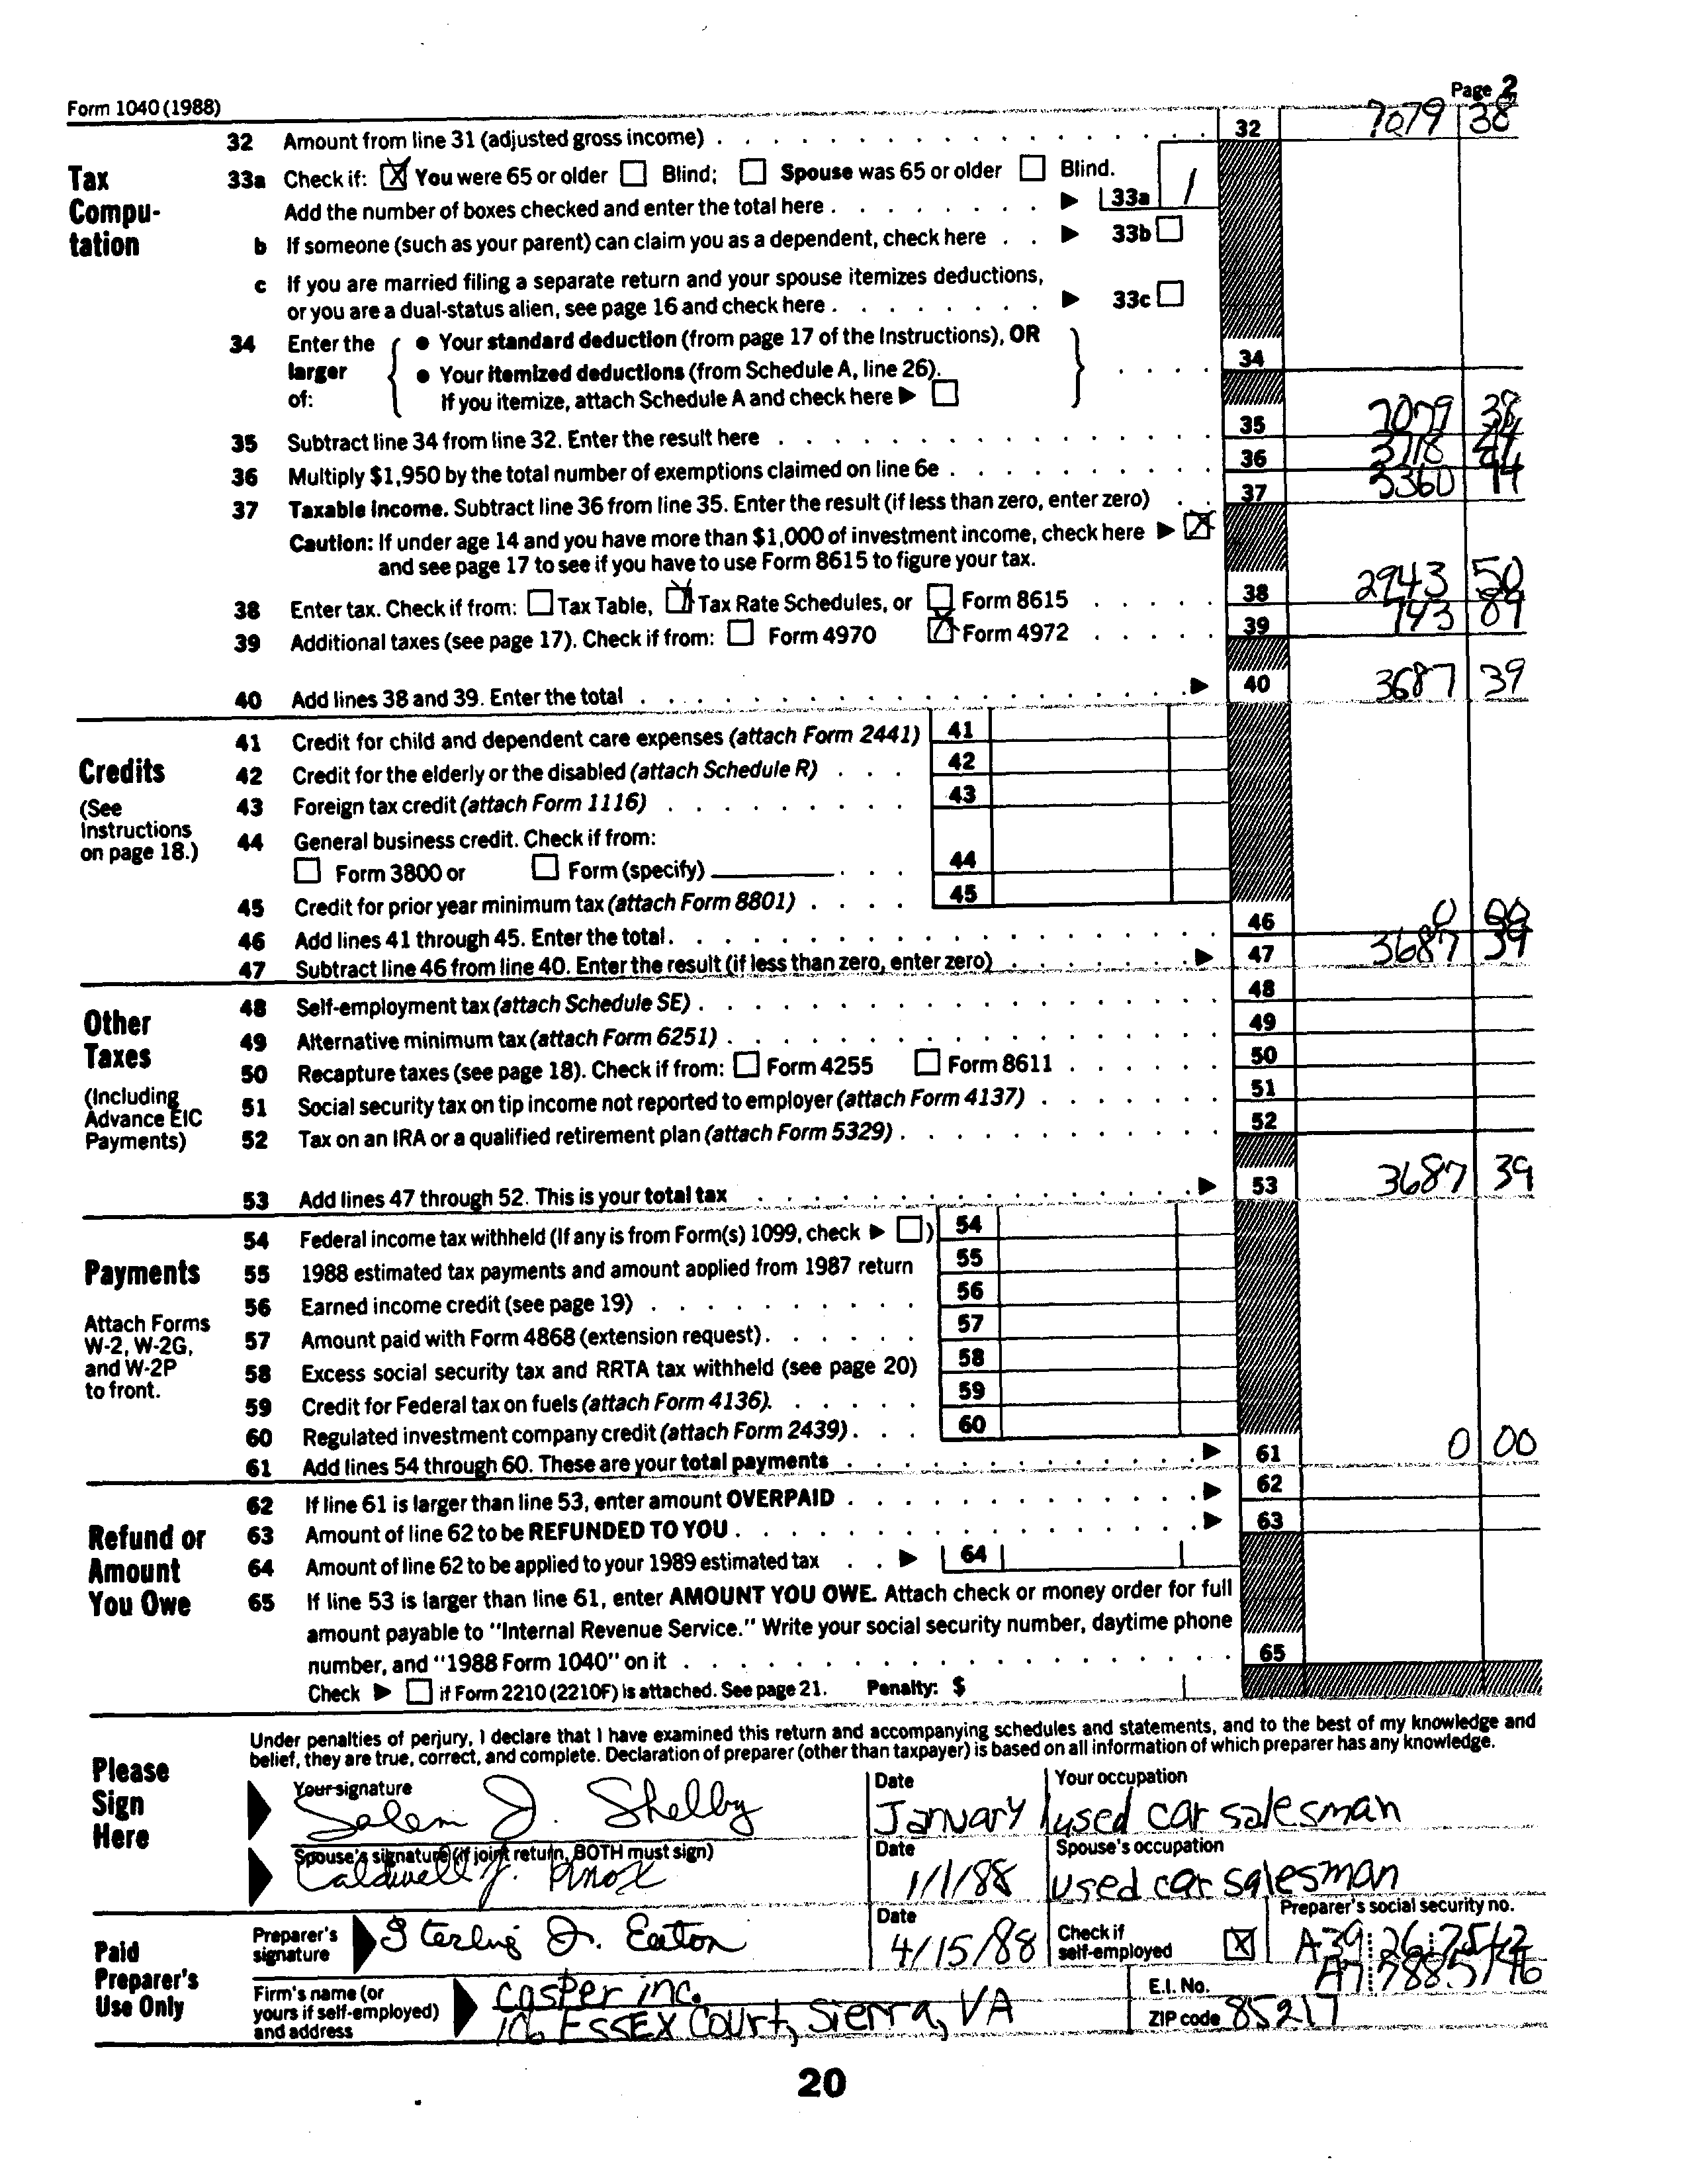 Form 1040 (1988) Page 2
32 Amount from line 31 (adjusted gross income) 32 7079 38
Tax Compu-tation
33a Check if: You were 65 or older Blind; Spouse was 65 or older Blind.
Add the number of boxes checked and enter the total here 33a 1
b If someone (such as your parent) can claim you as a dependent, check here 33b
c If you are married filing a separate return and your spouse itemizes deductions,
or you are a dual-status alien, see page 16 and check here 33c
34 Enter the larger of:
• Your standard deduction (from page 17 of the Instructions), OR
• Your itemized deductions (from Schedule A, line 26).
If you itemize, attach Schedule A and check here
34
35 Subtract line 34 from line 32. Enter the result here 35 7079 38
36 Multiply $1,950 by the total number of exemptions claimed on line 6e 36 3718 44
37 Taxable income. Subtract line 36 from line 35. Enter the result (if less than zero, enter zero) 37 3360
Caution: If under age 14 and you have more than $1,000 of investment income, check here
and see page 17 to see if you have to use Form 8615 to figure your tax.
38 Enter tax. Check if from: Tax Table, Tax Rate Schedules, or Form 8615 38 2943 50
39 Additional taxes (see page 17). Check if from: Form 4970 Form 4972 39 743 89
40 Add lines 38 and 39. Enter the total 40 3687 39
Credits
(See Instructions on page 18.)
41 Credit for child and dependent care expenses (attach Form 2441) 41
42 Credit for the elderly or the disabled (attach Schedule R) 42
43 Foreign tax credit (attach Form 1116) 43
44 General business credit. Check if from:
Form 3800 or Form (specify) 44
45 Credit for prior year minimum tax (attach Form 8801) 45
46 Add lines 41 through 45. Enter the total. 46 0 00
47 Subtract line 46 from line 40. Enter the result (if less than zero, enter zero) 47 3687 39
Other Taxes
(Including Advance EIC Payments)
48 Self-employment tax (attach Schedule SE) 48
49 Alternative minimum tax (attach Form 6251) 49
50 Recapture taxes (see page 18). Check if from: Form 4255 Form 8611 50
51 Social security tax on tip income not reported to employer (attach Form 4137) 51
52 Tax on an IRA or a qualified retirement plan (attach Form 5329) 52
53 Add lines 47 through 52. This is your total tax 53 3687 39
Payments
Attach Forms W-2, W-2G, and W-2P to front.
54 Federal income tax withheld (If any is from Form(s) 1099, check ) 54
55 1988 estimated tax payments and amount applied from 1987 return 55
56 Earned income credit (see page 19) 56
57 Amount paid with Form 4868 (extension request). 57
58 Excess social security tax and RRTA tax withheld (see page 20) 58
59 Credit for Federal tax on fuels (attach Form 4136). 59
60 Regulated investment company credit (attach Form 2439) 60
61 Add lines 54 through 60. These are your total payments 61 0 00
Refund or Amount You Owe
62 If line 61 is larger than line 53, enter amount OVERPAID 62
63 Amount of line 62 to be REFUNDED TO YOU 63
64 Amount of line 62 to be applied to your 1989 estimated tax 64
65 If line 53 is larger than line 61, enter AMOUNT YOU OWE. Attach check or money order for full
amount payable to "Internal Revenue Service." Write your social security number, daytime phone
number, and "1988 Form 1040" on it 65
Check if Form 2210 (2210F) is attached. See page 21. Penalty: $
Please Sign Here
Under penalties of perjury, I declare that I have examined this return and accompanying schedules and statements, and to the best of my knowledge and
belief, they are true, correct, and complete. Declaration of preparer (other than taxpayer) is based on all information of which preparer has any knowledge.
Your signature Date Your occupation
Salem J. Shelby January 1 used car salesman
Spouse's signature (if joint return, BOTH must sign) Date Spouse's occupation
Caldwell J. Knox 1/1/88 used car salesman
Paid Preparer's Use Only
Preparer's signature Sterling J. Eaton Date 4/15/88 Check if self-employed X Preparer's social security no. A39 26 7542
Firm's name (or yours if self-employed) and address
casper inc. E.I. No. A7 7885146
106 ESSEX Court, Sierra, VA ZIP code 85217
20